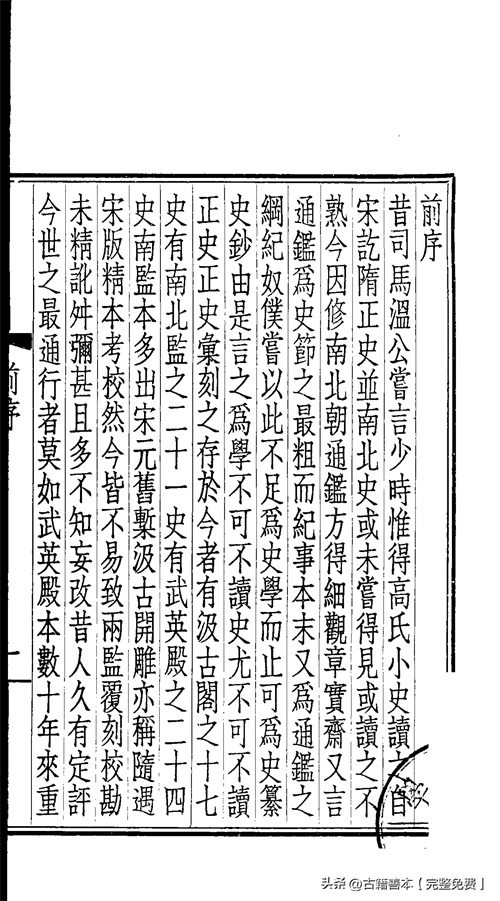 前序
昔司馬溫公嘗言少時惟得高氏小史讀之自
宋訖隋正史並南北史或未嘗得見或讀之不
熟今因修南北朝通鑑方得細觀章實齋又言
通鑑爲史節之最粗而紀事本末又爲通鑑之
綱紀奴僕嘗以此不足爲史學而止可爲史纂
史鈔由是言之爲學不可不讀史尤不可不讀
正史正史彙刻之存於今者有汲古閣之十七
史有南北監之二十一史有武英殿之二十四
史南監本多出宋元舊槧汲古開雕亦稱隨遇
宋版精本考校然今皆不易致兩監覆刻校勘
未精訛舛彌甚且多不知妄改昔人久有定評
今世之最通行者莫如武英殿本數十年來重
前序
一
头条@古籍善本【完整免费】